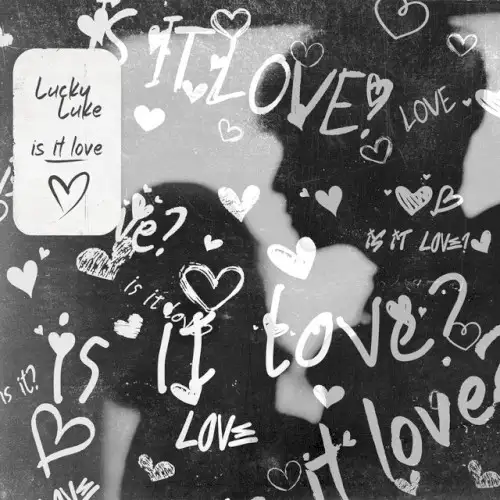 IS IT LOVE?
LOVE
Lucky
Luke
is it love
ve?
IS IT LOVE?
is it love
is it love?
is it?
LOVE
it love?
LOVE